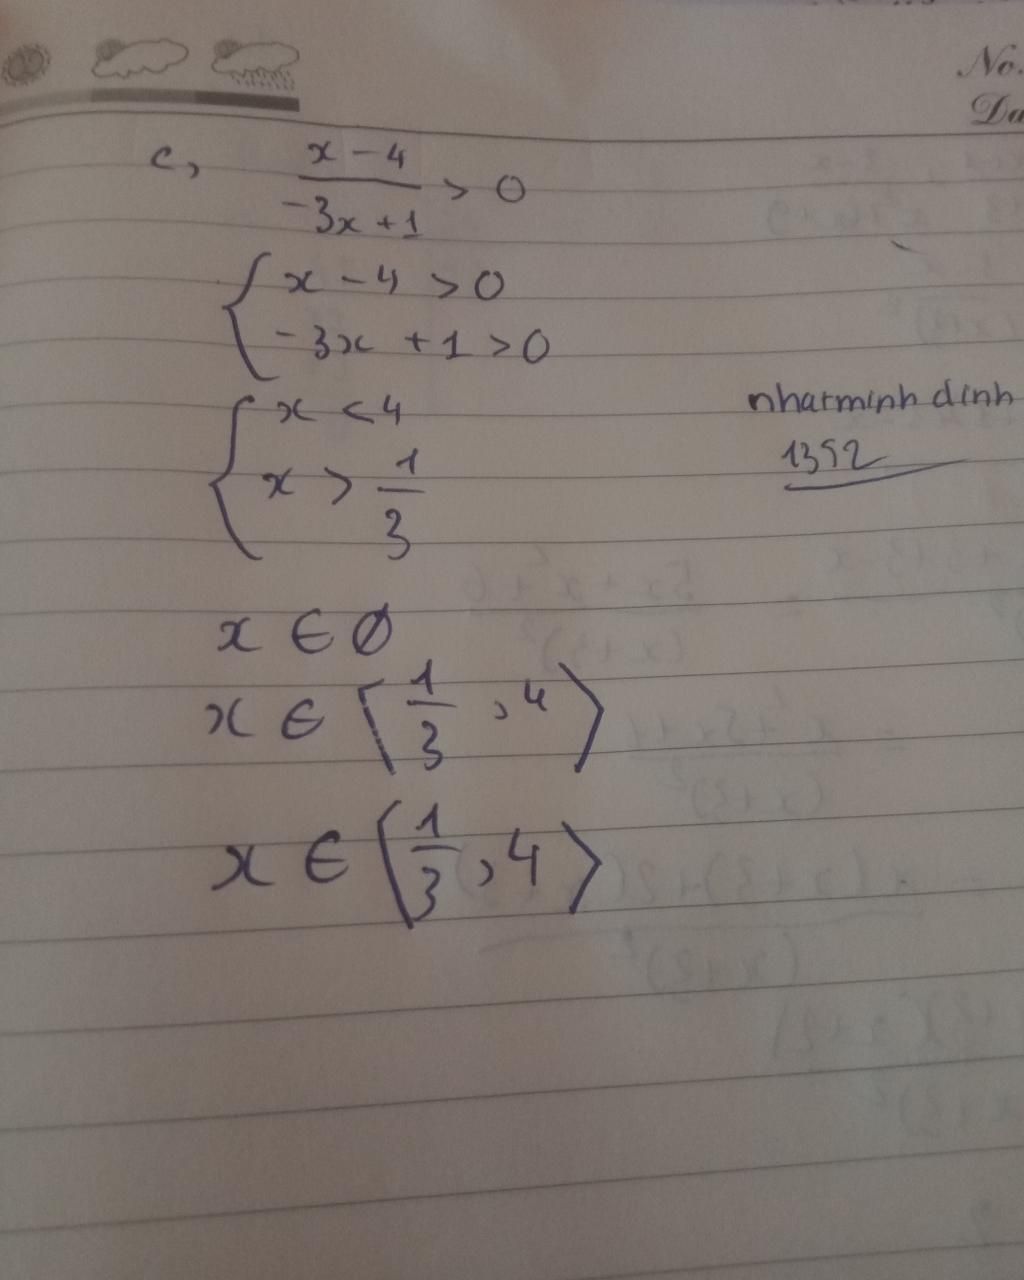 No.
Da
c, x - 4 / -3x + 1 > 0
{ x - 4 > 0
-3x + 1 > 0
{ x < 4
x > 1/3
nhatminh dinh
1392
x ∈ Ø
x ∈ [1/3, 4)
x ∈ (1/3, 4)